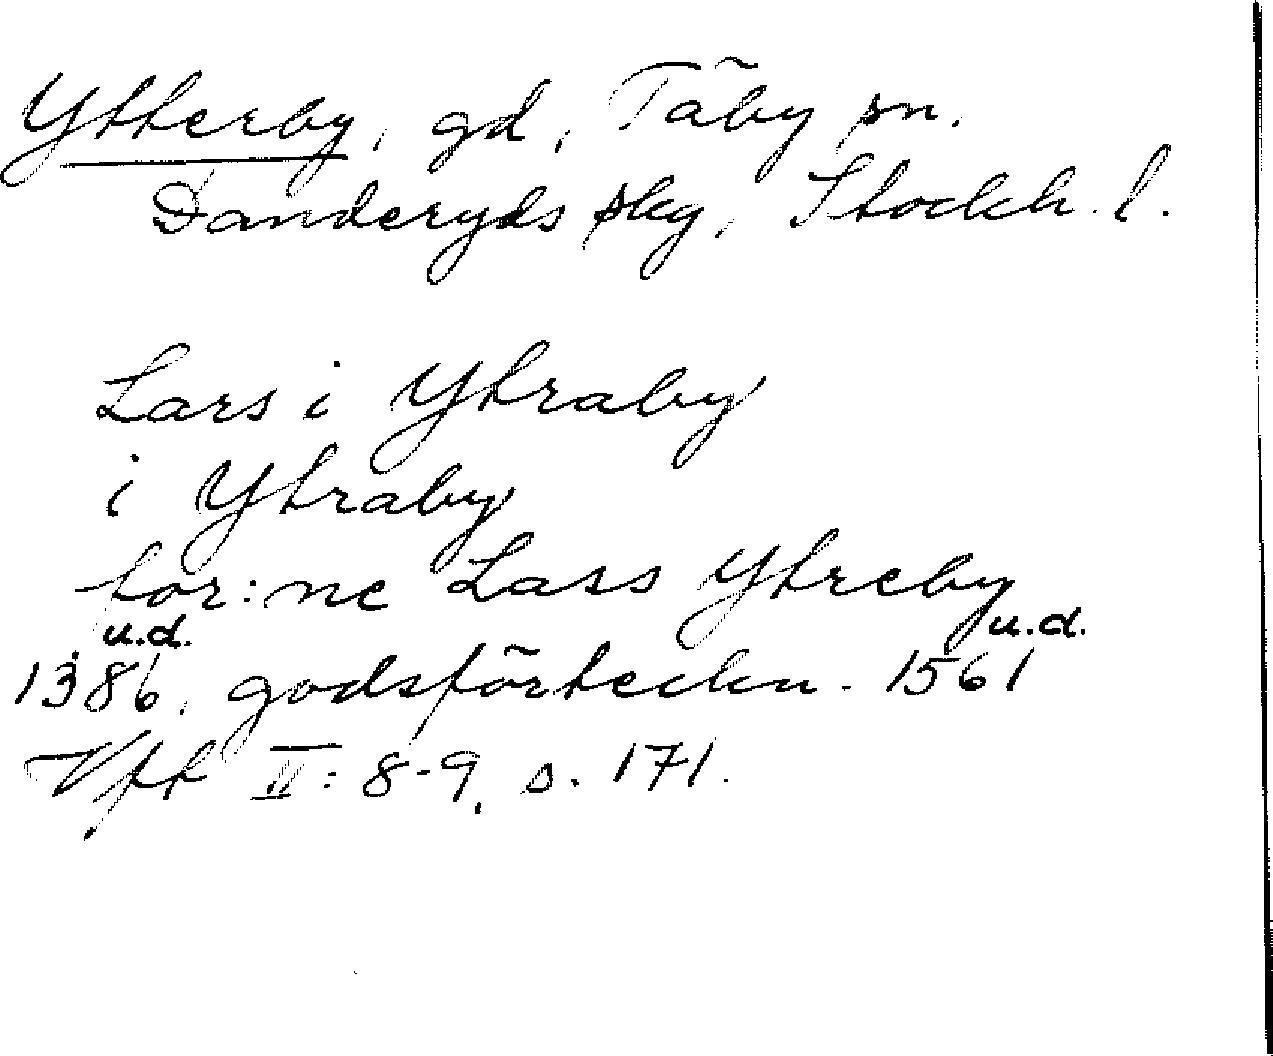 Ytterby, gd, Täby sn.
Danderyds skg, Stockh. l.
Lars i Ytraby
i Ytraby
tor:ne Lass Ytreby
u.d. u.d.
1386, godsförteckn. 1561
Vft II: 8-9, s. 171.